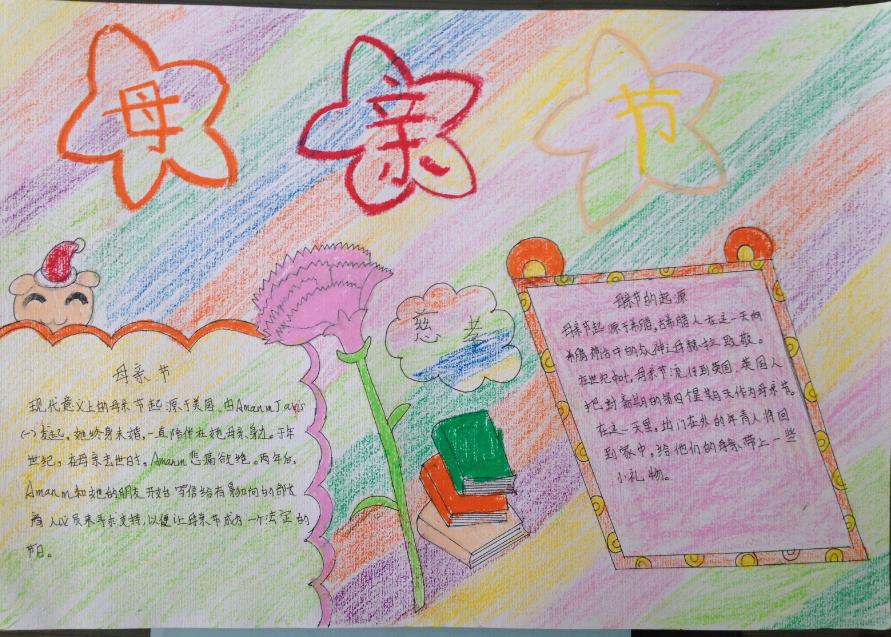 母亲节
母亲节
现代意义上的母亲节起源于美国,由Amanm Jarvis
(一)发起,她终身未婚,一直陪伴在她母亲身边。于年
世纪,在母亲去世时,Amanm悲痛欲绝。两年后,
Amanm和她的朋友开始写信给有影响的
商人议员来寻求支持,以便让母亲节成为一个法定的
节日。
慈孝
母亲节的起源
母亲节起源于希腊,古希腊人在这一天向
希腊神话中的众神之母赫拉致敬。
在世纪中叶,母亲节流传到英国,英国人
把封斋期的第四个星期天作为母亲节。
在这一天里,出门在外的年青人将回
到家中,给他们的母亲带上一些
小礼物。